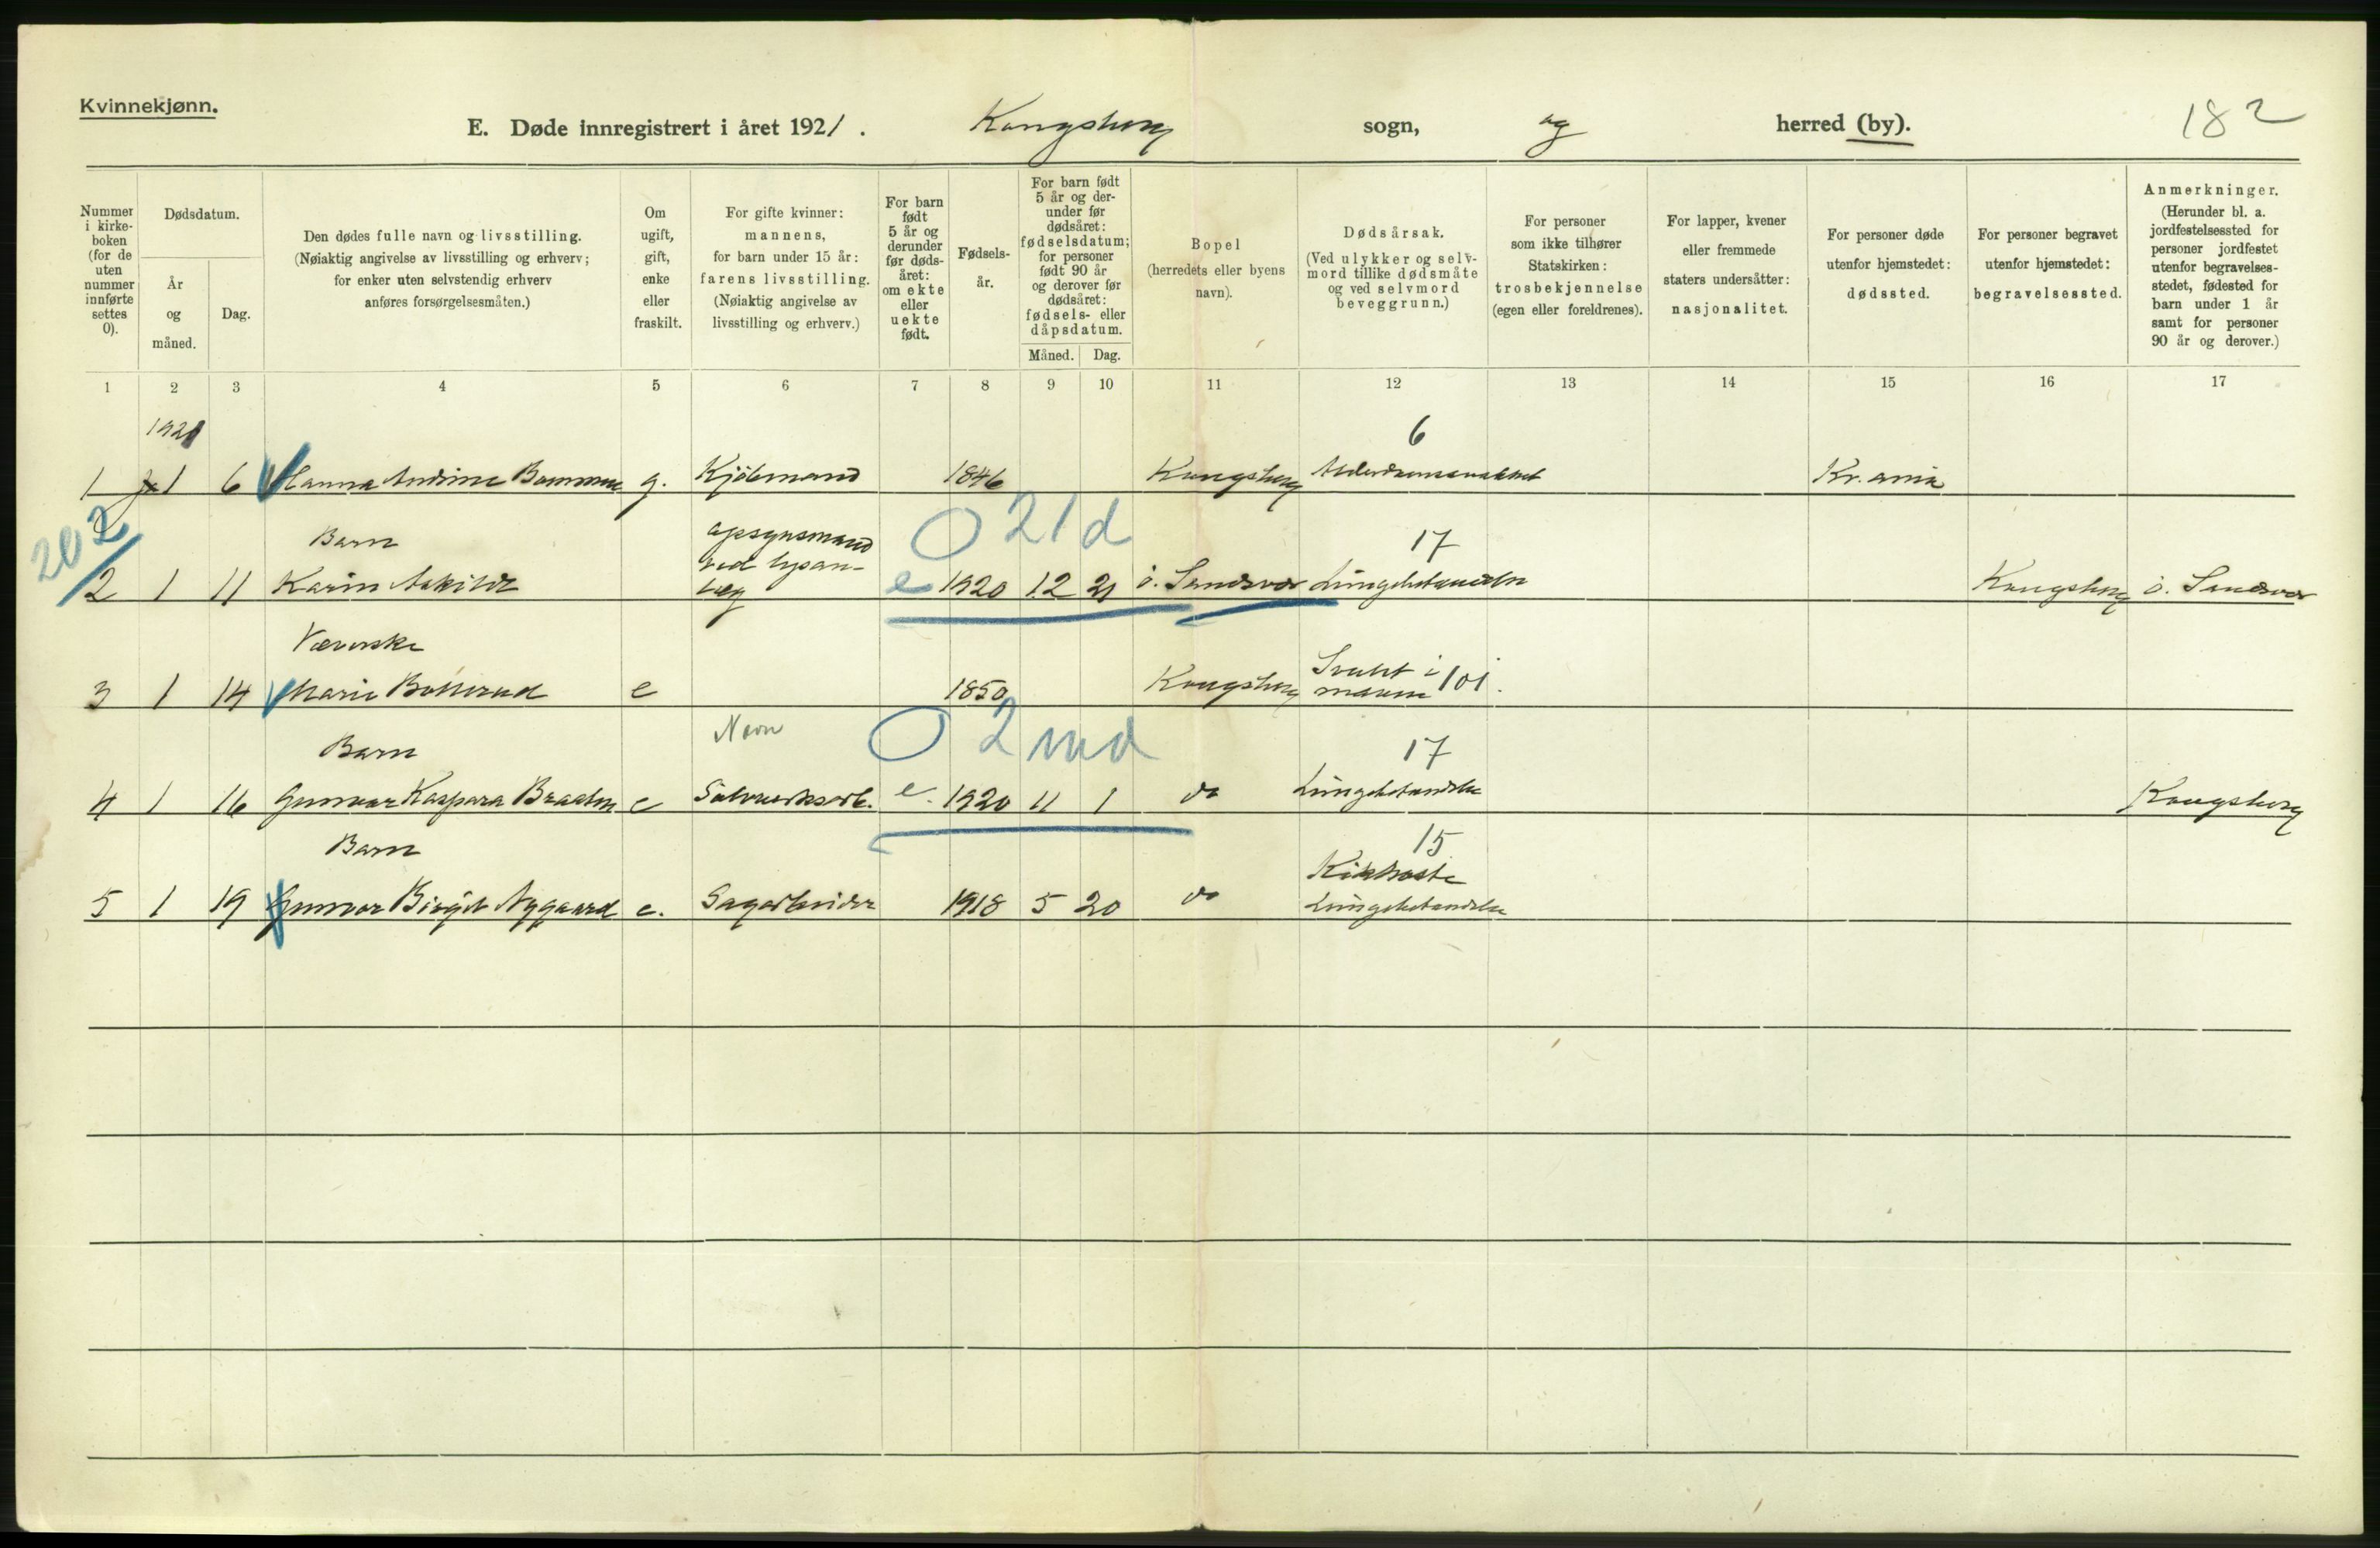 Kvinnekjønn.
E. Døde innregistrert i året 1921. Kongsberg sogn, og herred (by). 182
Nummer i kirkeboken (for de uten nummer innførte settes 0).
Dødsdatum.
År og måned.
Dag.
Den dødes fulle navn og livsstilling. (Nøiaktig angivelse av livsstilling og erhverv; for enker uten selvstendig erhverv anføres forsørgelsesmåten.)
Om ugift, gift, enke eller fraskilt.
For gifte kvinner: mannens, for barn under 15 år: farens livsstilling. (Nøiaktig angivelse av livsstilling og erhverv.)
For barn født 5 år og derunder før dødsåret: om ekte eller uekte født.
Fødselsår.
For barn født 5 år og derunder før dødsåret: fødselsdatum; for personer født 90 år og derover før dødsåret: fødsels- eller dåpsdatum.
Måned. Dag.
Bopel (herredets eller byens navn).
Dødsårsak. (Ved ulykker og selvmord tillike dødsmåte og ved selvmord beveggrunn.)
For personer som ikke tilhører Statskirken: trosbekjennelse (egen eller foreldrenes).
For lapper, kvener eller fremmede staters undersåtter: nasjonalitet.
For personer døde utenfor hjemstedet: dødssted.
For personer begravet utenfor hjemstedet: begravelsessted.
Anmerkninger. (Herunder bl. a. jordfestelsessted for personer jordfestet utenfor begravelsesstedet, fødested for barn under 1 år samt for personer 90 år og derover.)
1 2 3 4 5 6 7 8 9 10 11 12 13 14 15 16 17
1921 6
1 1 6 Hanna Andrine g. Kjøbmand 1846 Kongsberg Kr.ania
202
Barn opsynsmand O 21 d 17
ved lysan-
2 1 11 Karin Askildt læg e 1920 12 21 ö. Sandsvær Lungebetændelse Kongsberg ö. Sandsvær
Væverske Svulst i
3 1 14 Marie e 1850 Kongsberg maven 101.
Barn Navn O 2 md 17
4 1 16 Gunvor Kaspara Braaten e Sølvverksarb. e. 1920 11 1 do Lungebetændelse Kongsberg
Barn 15
Kikhoste
5 1 19 Gunvor Birgit Nygaard e. Sagarbeider 1918 5 20 do Lungebetændelse